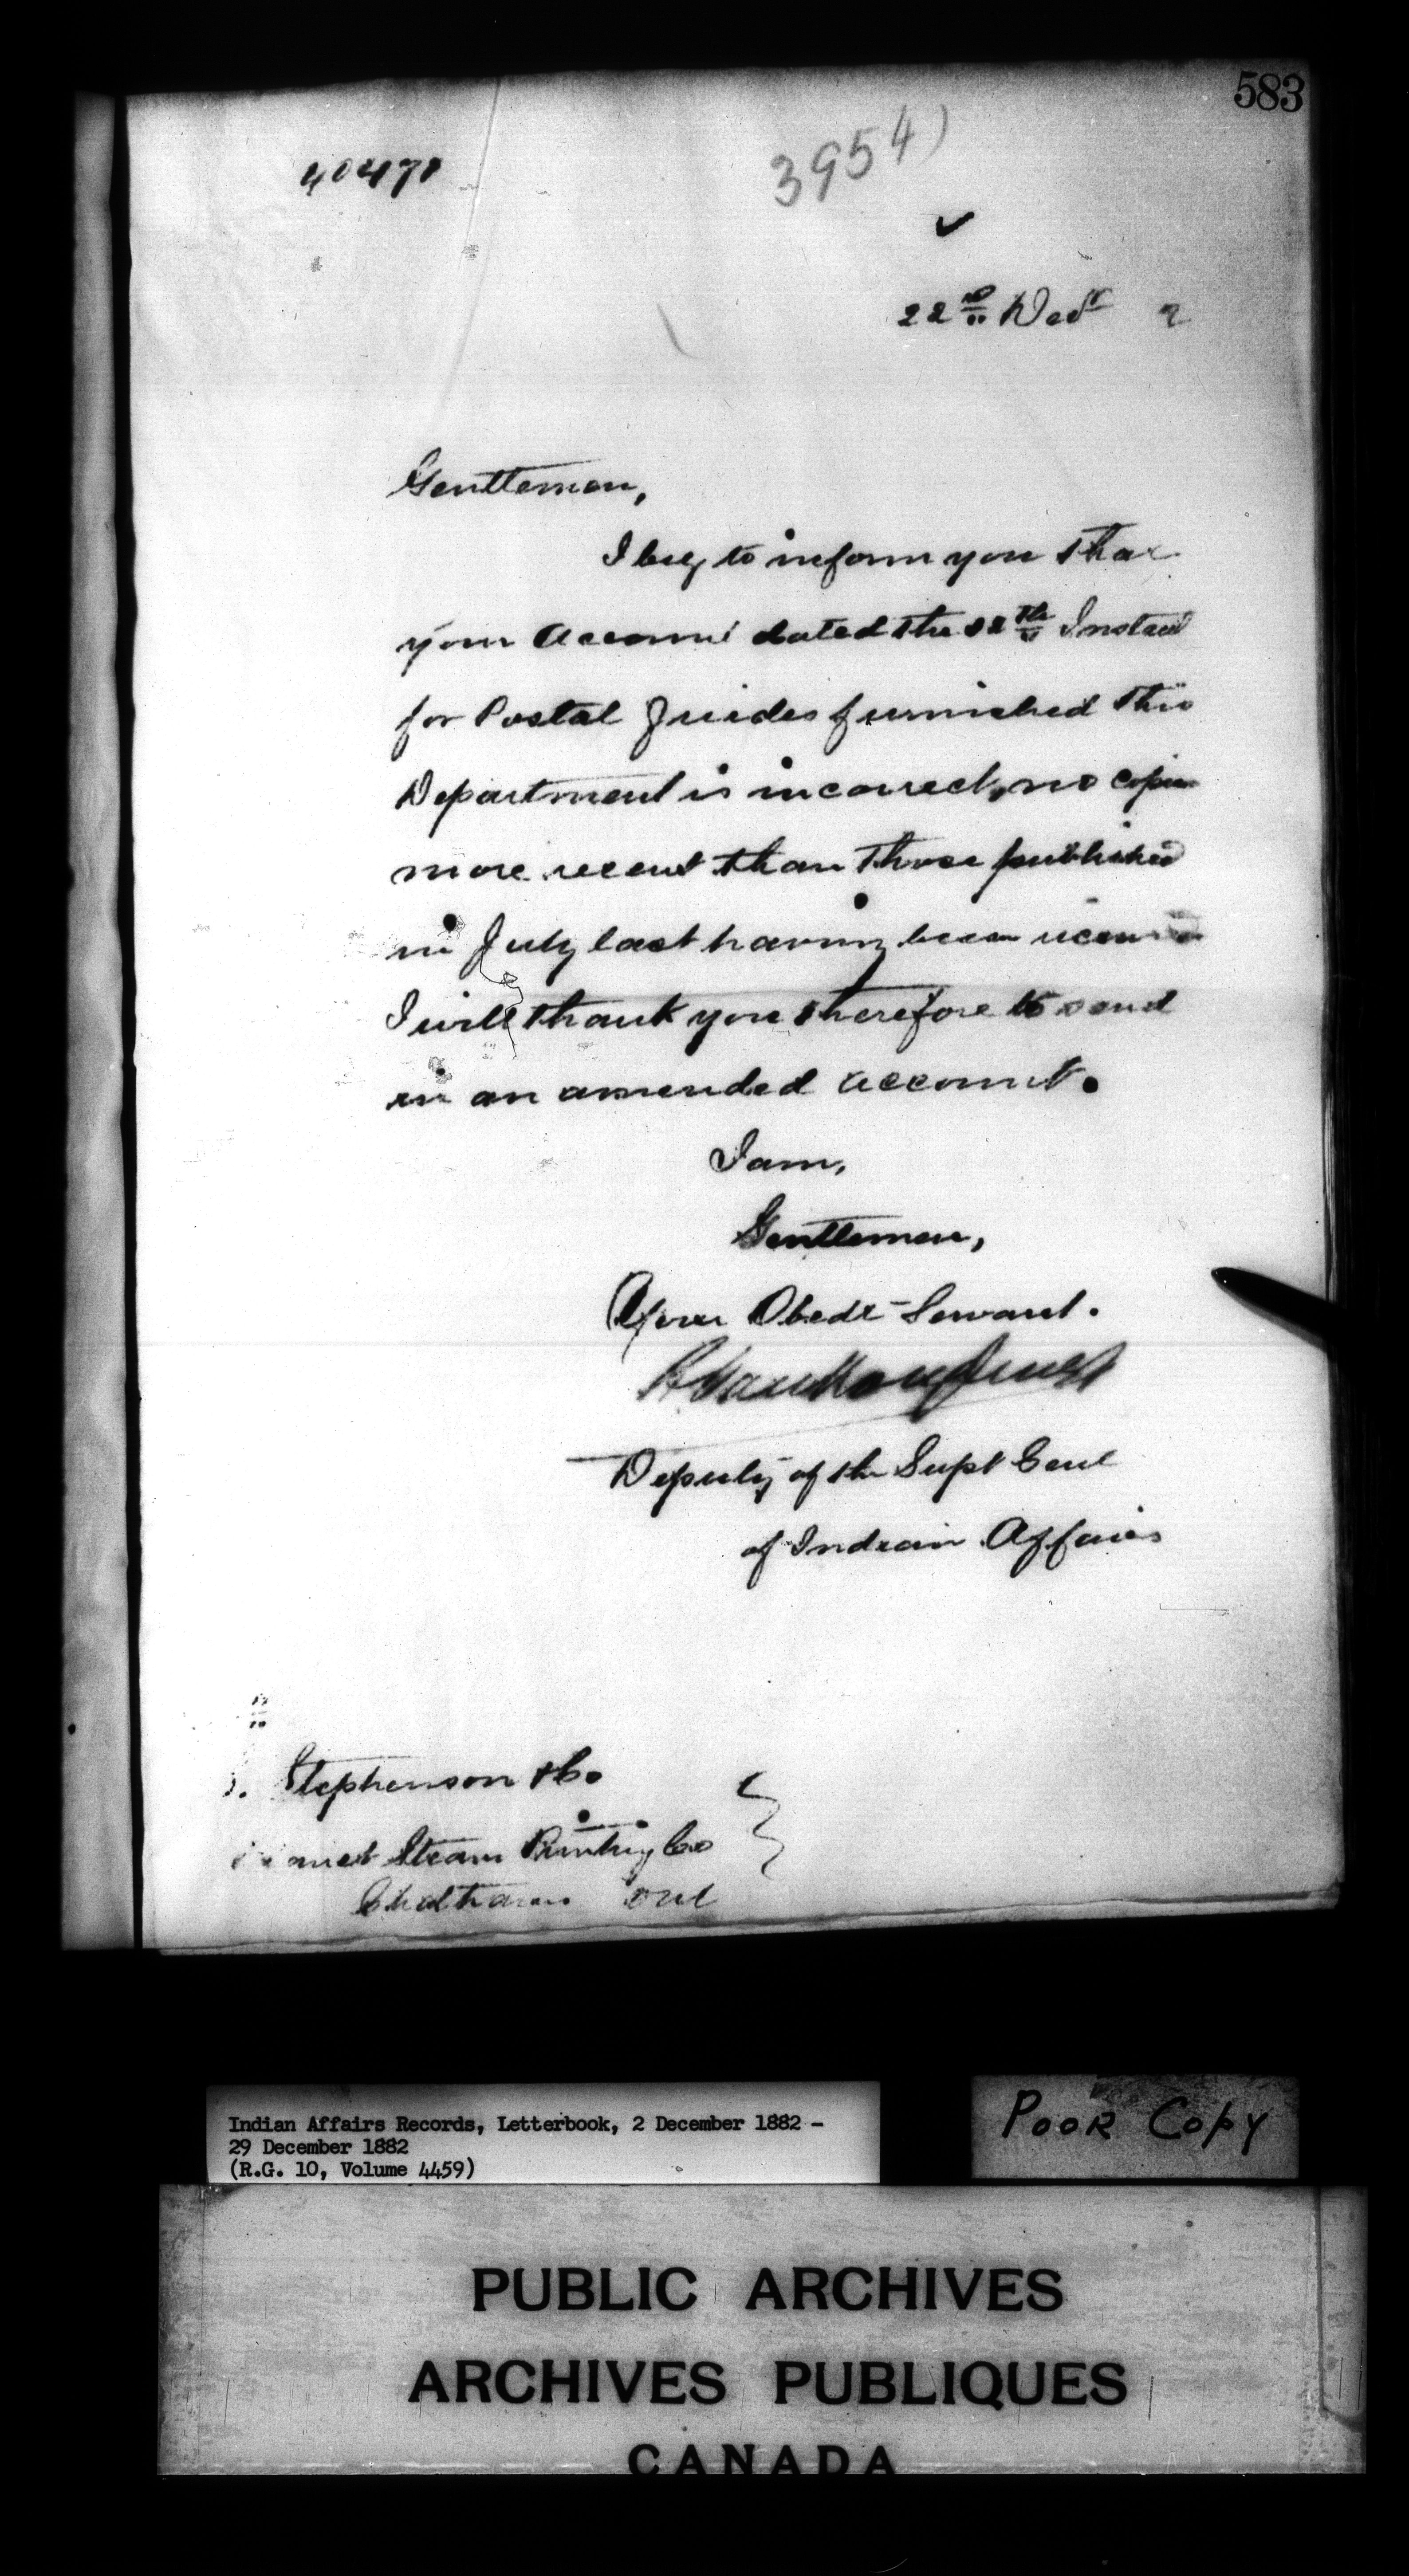 583
40471
3954)
22nd Decr 2
Gentlemen,
I beg to inform you that
your Account dated the 12th Instant
for Postal Guides furnished this
Department is incorrect, no copies
more recent than those published
in July last having been received
I will thank you therefore to send
in an amended account.
I am,
Gentlemen,
Your Obedt Servant.
L. Vankoughnet
Deputy of the Supt Genl
of Indian Affairs
Stephenson & Co
Steam Printing Co
Chatham Ont
Indian Affairs Records, Letterbook, 2 December 1882 -
29 December 1882
(R.G. 10, Volume 4459)
POOR COPY
PUBLIC ARCHIVES
ARCHIVES PUBLIQUES
CANADA